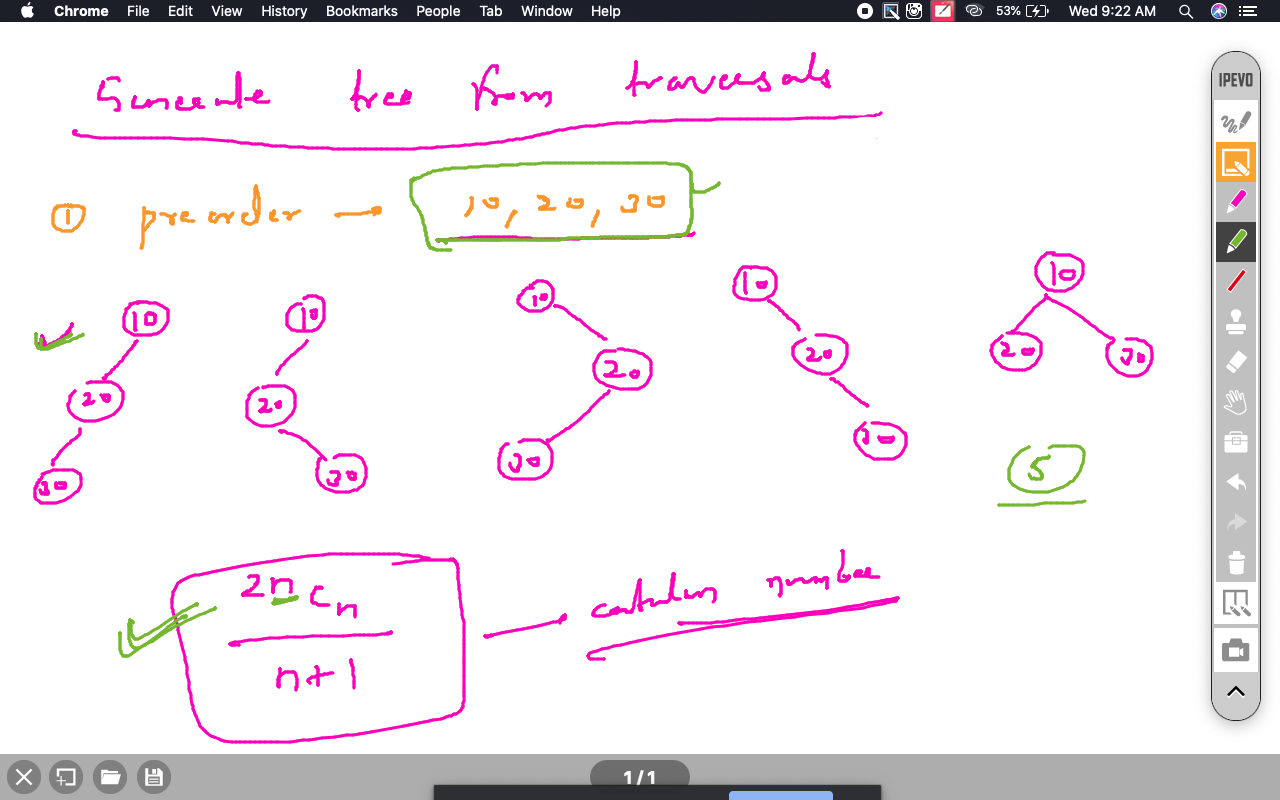 Chrome File Edit View History Bookmarks People Tab Window Help 53% Wed 9:22 AM
IPEVO
Generate tree from traversals
① preorder → 10, 20, 30
10 10 10 10 10
20 20 20 20 20 30
30 30 30 30
5
2n C n
n+1
catalan number
1/1